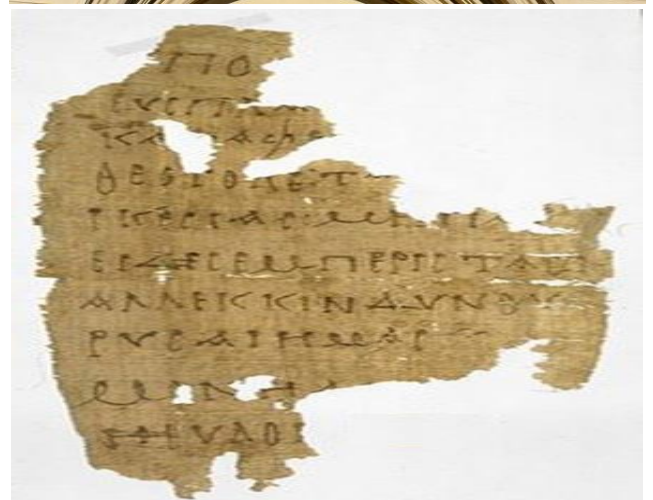 ΠΟ
ΕΥCΠΛ
ΚΑΤΑΦΕ
ΘΕΟΤΟΚΕΤ
ΙΚΕCΙΑCΜΗΠΑ
ΕΙΔΗCΕΜΠΕΡΙCΤΑC
ΑΛΛΕΚΚΙΝΔΥΝΟΥ
ΡΥCΑΙΗΜΑC
ΜΟΝΗ
ΗΕΥΛΟΓ